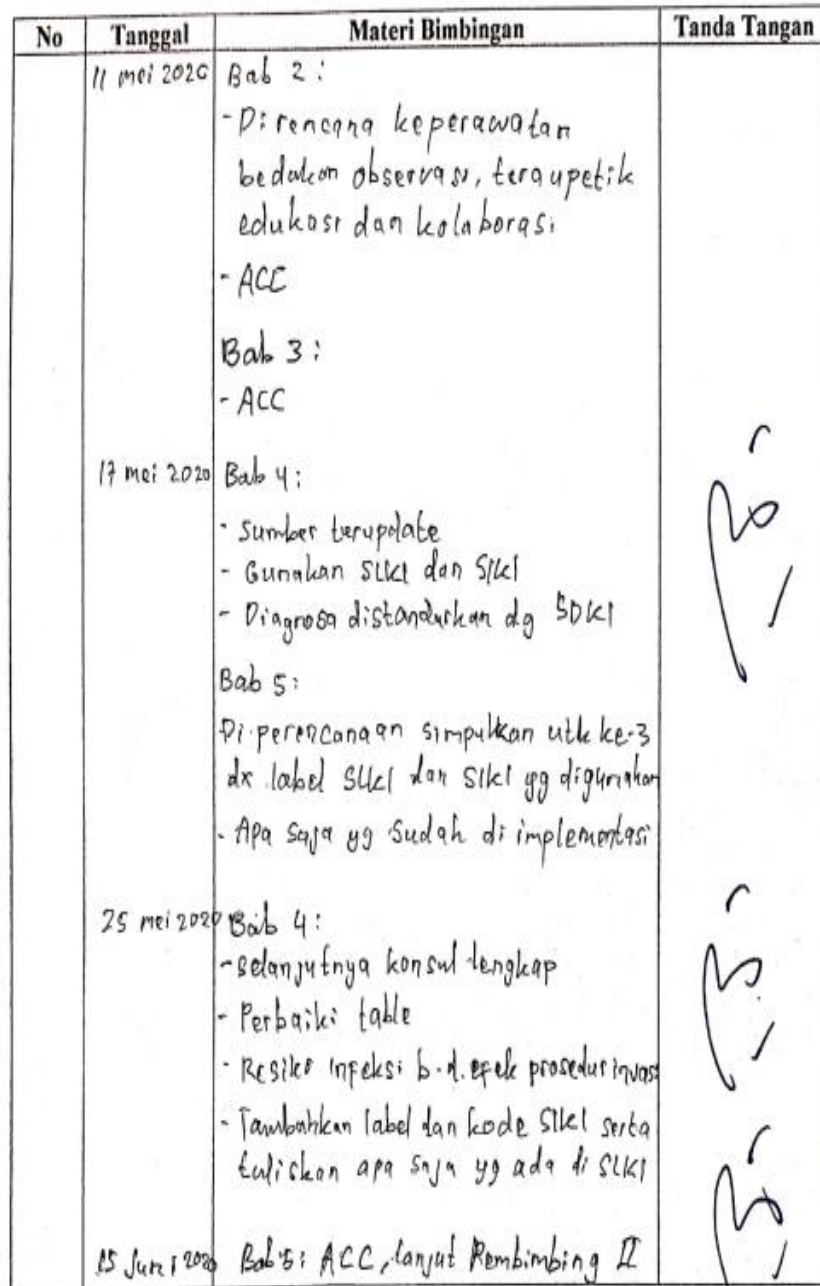 No Tanggal Materi Bimbingan Tanda Tangan
11 mei 2020 Bab 2 :
- Di rencana keperawatan
bedakan observasi, teraupetik
edukasi dan kolaborasi
- ACC
Bab 3 :
- ACC
17 mei 2020 Bab 4 :
- Sumber terupdate
- Gunakan SLKI dan SIKI
- Diagnosa distandarkan dg SDKI
Bab 5 :
Di perencanaan simpulkan utk ke-3
dx label SLKI dan SIKI yg digunakan
- Apa saja yg sudah di implementasi
25 mei 2020 Bab 4 :
- selanjutnya konsul lengkap
- Perbaiki table
- Resiko infeksi b.d. efek prosedur invasi
- Tambahkan label dan kode SIKI serta
tuliskan apa saja yg ada di SLKI
15 Juni 2020 Bab 5 : ACC, lanjut Pembimbing II